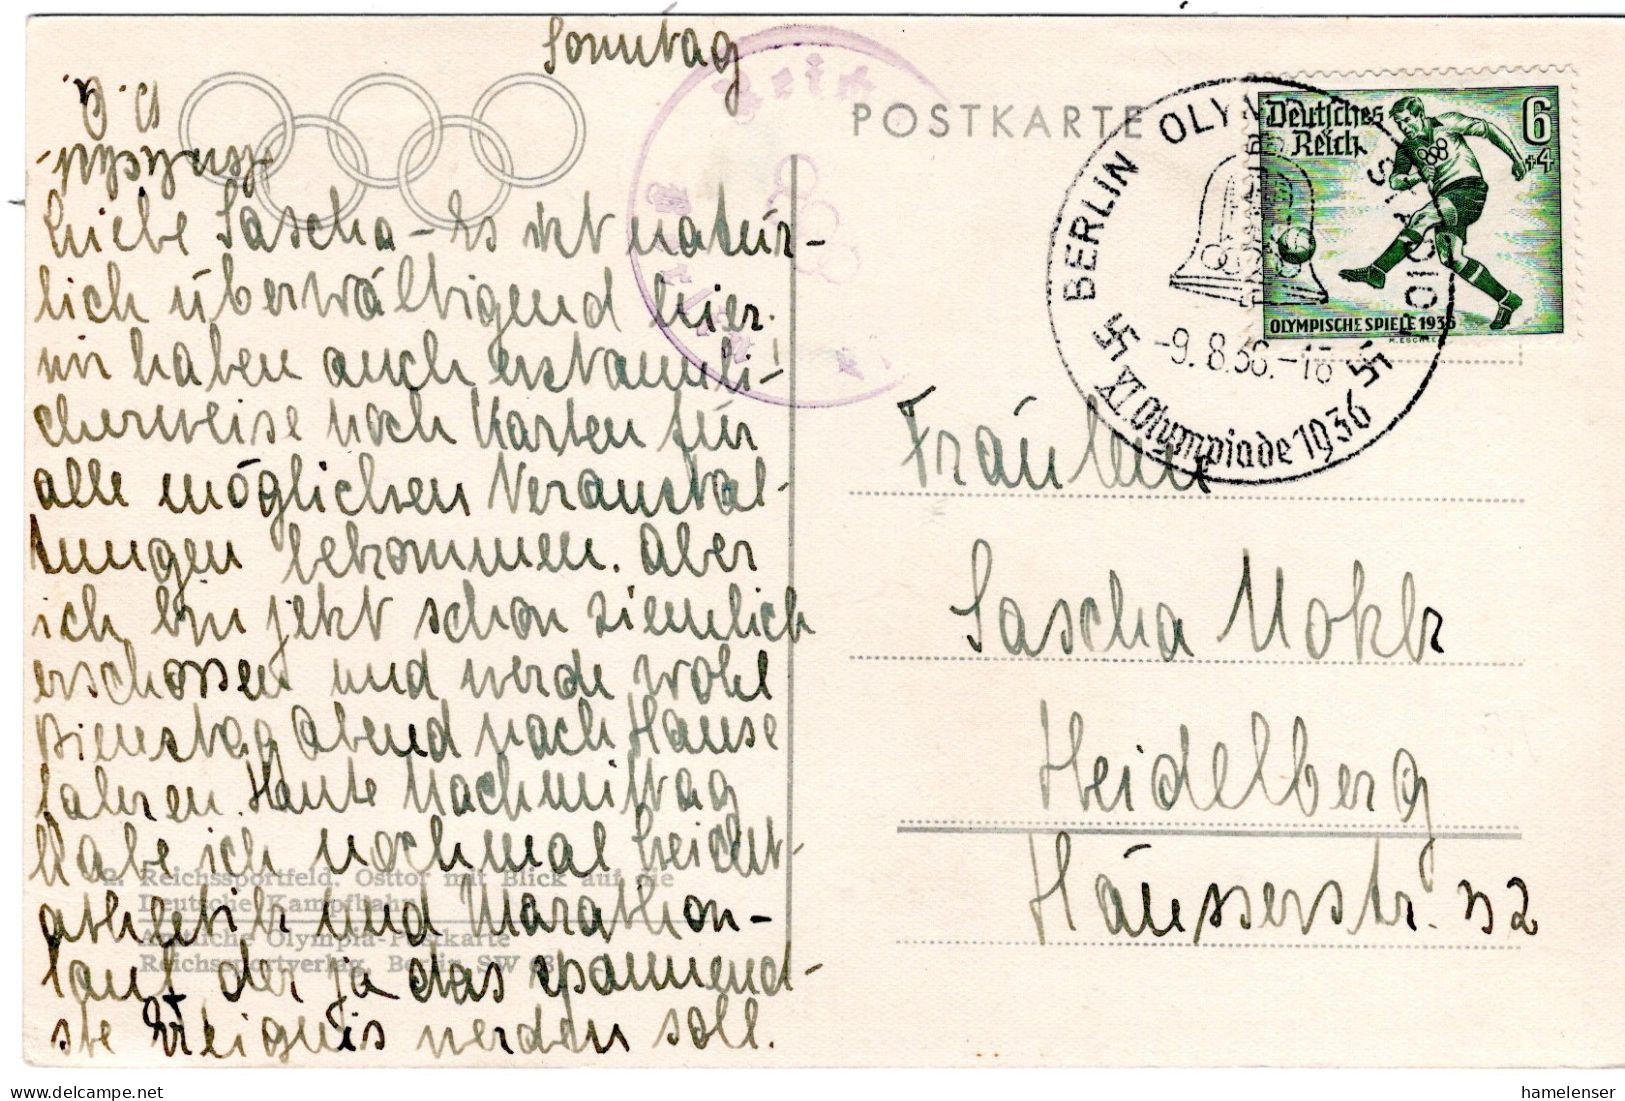 Sonntag
Liebe Sascha – Es ist natür-
lich überwältigend hier.
wir haben auch erstaunli-
cherweise noch Karten für
alle möglichen Veranstal-
tungen bekommen. Aber
ich bin jetzt schon ziemlich
erschossen und werde wohl
Dienstag Abend nach Hause
fahren. Heute Nachmittag
habe ich nochmal Leicht-
athletik und Marathon-
lauf der ja das spannend-
ste Ereignis werden soll.
2. Reichssportfeld. Osttor mit Blick auf die
Deutsche Kampfbahn
Amtliche Olympia-Postkarte
Reichssportverlag, Berlin SW 68
POSTKARTE
BERLIN OLYMPIA-STADION
-9.8.36.-18
XI. Olympiade 1936
Deutsches
Reich
6
+4
OLYMPISCHE SPIELE 1936
Fräulein
Sascha
Heidelberg
Häusserstr. 32
hamelenser